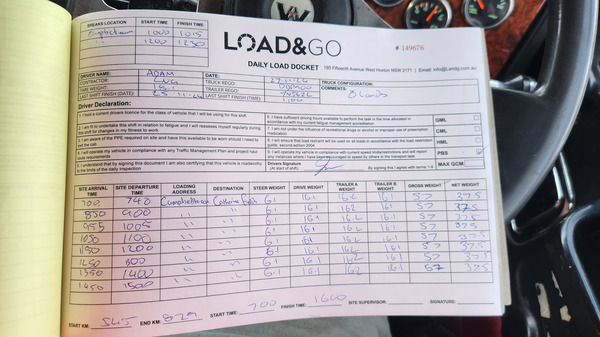 BREAKS LOCATION START TIME FINISH TIME
Campbelltown 1000 1015
" 1200 1230
LOAD&GO
# 149676
DAILY LOAD DOCKET 195 Fifteenth Avenue West Hoxton NSW 2171 | Email: info@Landg.com.au
DRIVER NAME: ADAM DATE:
CONTRACTOR: L&G TRUCK REGO: TRUCK CONFIGURATION:
TIME WEIGHT: TRAILER REGO: COMMENTS:
LAST SHIFT DATE: LAST SHIFT FINISH (TIME) 8 Loads
Driver Declaration:
1. I hold a current drivers licence for the class of vehicle that I will be using for this shift.
2. I am fit to undertake this shift in relation to fatigue and will reassess myself regularly during the shift for changes in my fitness to work.
3. I am aware of the PPE required on site and have this available to be worn should I need to exit the cab
4. I will operate my vehicle in compliance with any Traffic Management Plan and project haul route requirements
5. I understand that by signing this document I am also certifying that this vehicle is roadworthy to the limits of the daily inspection
6. I have sufficient driving hours available to perform the task in the time allocated in accordance with my current fatigue management accreditation
7. I am not under the influence of recreational drugs or alcohol or improper use of prescription medication
8. I will ensure that load restraint will be used on all loads in accordance with the load restraint guide, second edition 2004
9. I will operate my vehicle in compliance with current speed limits/restrictions and will report any instances where I have been encouraged to speed by others in the transport task
GML
CML
HML
PBS
MAX GCM
Drivers Signature
(At start of shift) By signing this I agree with terms 1-9
SITE ARRIVAL TIME SITE DEPARTURE TIME LOADING ADDRESS DESTINATION STEER WEIGHT DRIVE WEIGHT TRAILER A WEIGHT TRAILER B WEIGHT GROSS WEIGHT NET WEIGHT
700 740 Campbelltown 6.1 16.1 16.2 16.1 57 37.5
830 900 " " 6.1 16.1 16.2 16.1 57 37.5
955 1005 " " 6.1 16.1 16.2 16.1 57 37.5
1050 1100 " " 6.1 16.1 16.2 16.1 57 37.5
1150 1200 " " 6.1 16.1 16.2 16.1 57 37.5
1250 300 " " 6.1 16.1 16.2 16.1 57 37.5
1350 1400 " " 6.1 16.1 16.2 16.1 57 37.5
1450 1500
START KM: 545 END KM: 829 START TIME: 700 FINISH TIME: 1600 SITE SUPERVISOR: SIGNATURE: